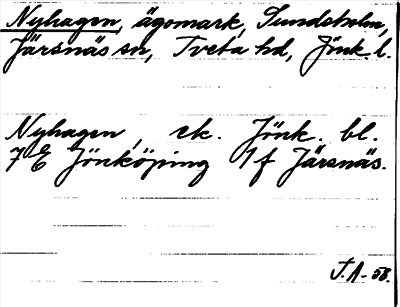 Nyhagen, ägomark, Sundsholm,
Järsnäs sn, Tveta hd, Jönk. l.
Nyhagen, ek. Jönk. bl.
7 E Jönköping 1 f Järsnäs.
J.A-58.